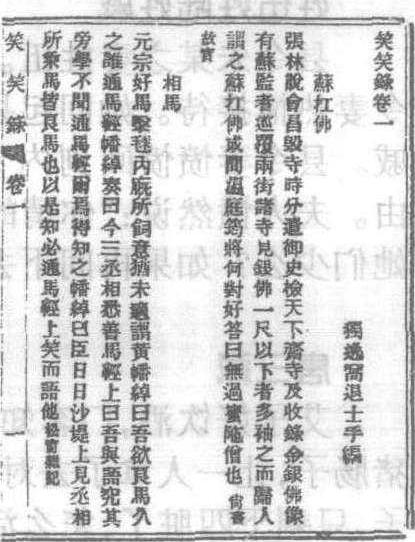 笑笑錄卷一
獨逸窩退士手編
蘇扛佛
張林說會昌毀寺時分遣御史檢天下齋寺及收錄金銀佛像
有蘇監者巡覆兩街諸寺見銀佛一尺以下者多袖之而歸人
謂之蘇扛佛或問溫庭筠將何對好答曰無過蜜陁僧也 尙書
故實
相馬
元宗好馬擊毬內廐所飼意猶未適謂黃幡綽曰吾欲良馬久
之誰通馬經幡綽奏曰今三丞相悉善馬經上曰吾與語究其
旁學不聞通馬經爾焉得知之幡綽曰臣日日沙堤上見丞相
所乘馬皆良馬也以是知必通馬經上笑而語他 松窗雜記
笑笑錄 卷一 一